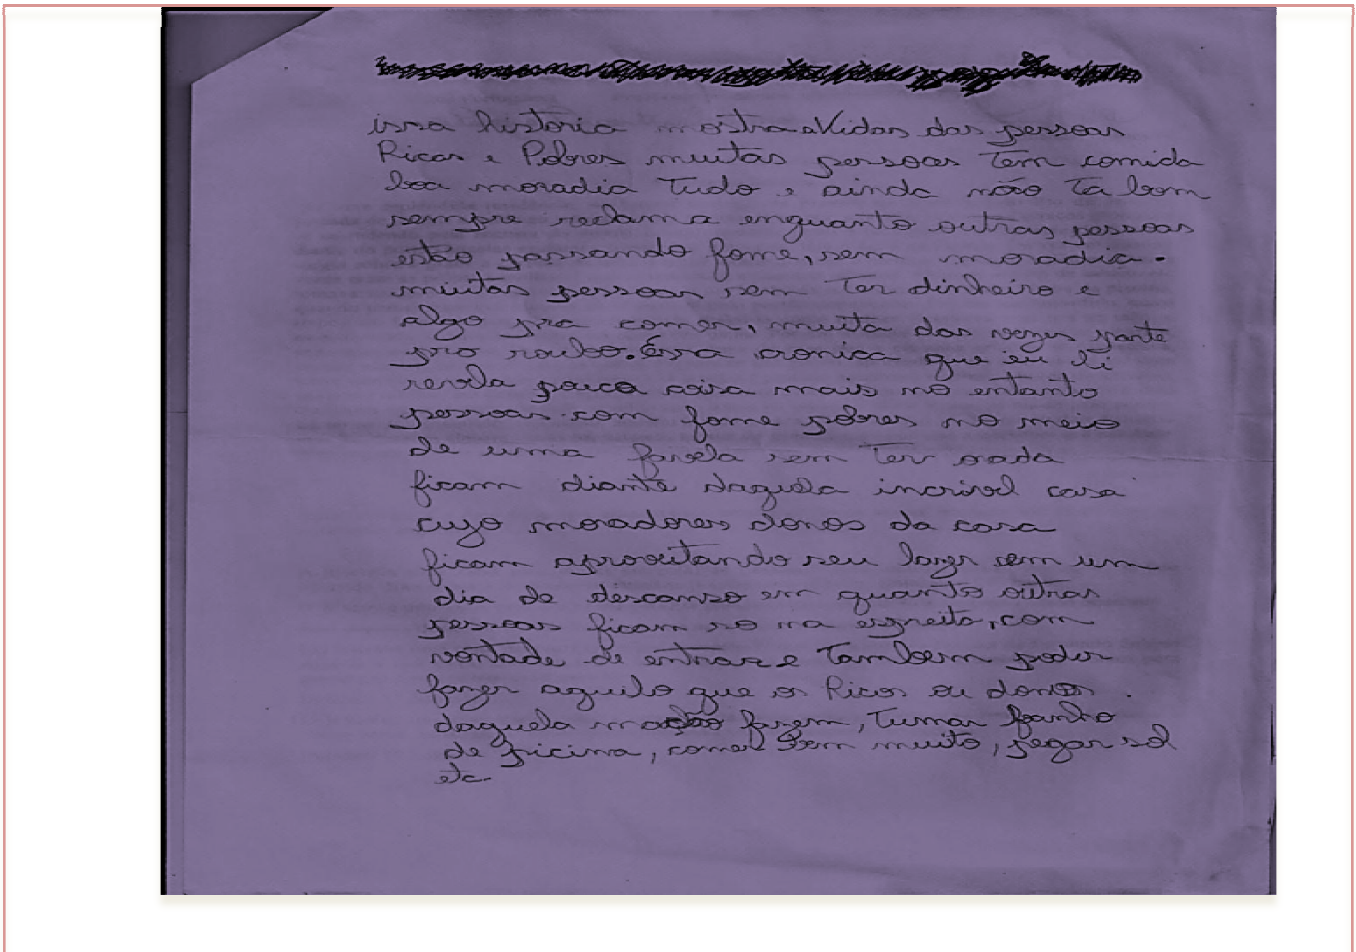 issa historia mostra a Vidas das pessoas
Ricas e Pobres muitas pessoas tem comida
boa moradia tudo e ainda não ta bom
sempre reclama enquanto outras pessoas
estão passando fome, sem moradia.
muitas pessoas sem ter dinheiro e
algo pra comer, muita das vezes parte
pro roubo. Essa cronica que eu li
revela pouca coisa mais no entanto
pessoas com fome pobres no meio
de uma favela sem ter nada
ficam diante daquela incrivel casa
cujo moradores donos da casa
ficam aproveitando seu lazer em um
dia de descanso em quanto outras
pessoas ficam so na espreita, com
vontade de entrar e tambem poder
fazer aquilo que os Ricos ou donos
daquela mansão fazem, tumar banho
de picina, comer bem muito, pegar sol
etc.